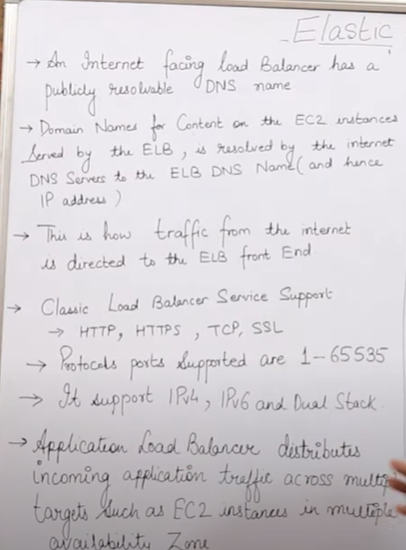 Elastic
→ An Internet facing load Balancer has a
publicly resolvable DNS name
→ Domain Names for Content on the EC2 instances
Served by the ELB, is resolved by the internet
DNS Servers to the ELB DNS Name (and hence
IP address)
→ This is how traffic from the internet
is directed to the ELB front End
→ Classic Load Balancer Service Support
→ HTTP, HTTPS, TCP, SSL
→ Protocols ports Supported are 1-65535
→ It support IPv4, IPv6 and Dual Stack.
→ Application Load Balancer distributes
incoming application traffic across
targets such as EC2 instances in multiple
availability Zone